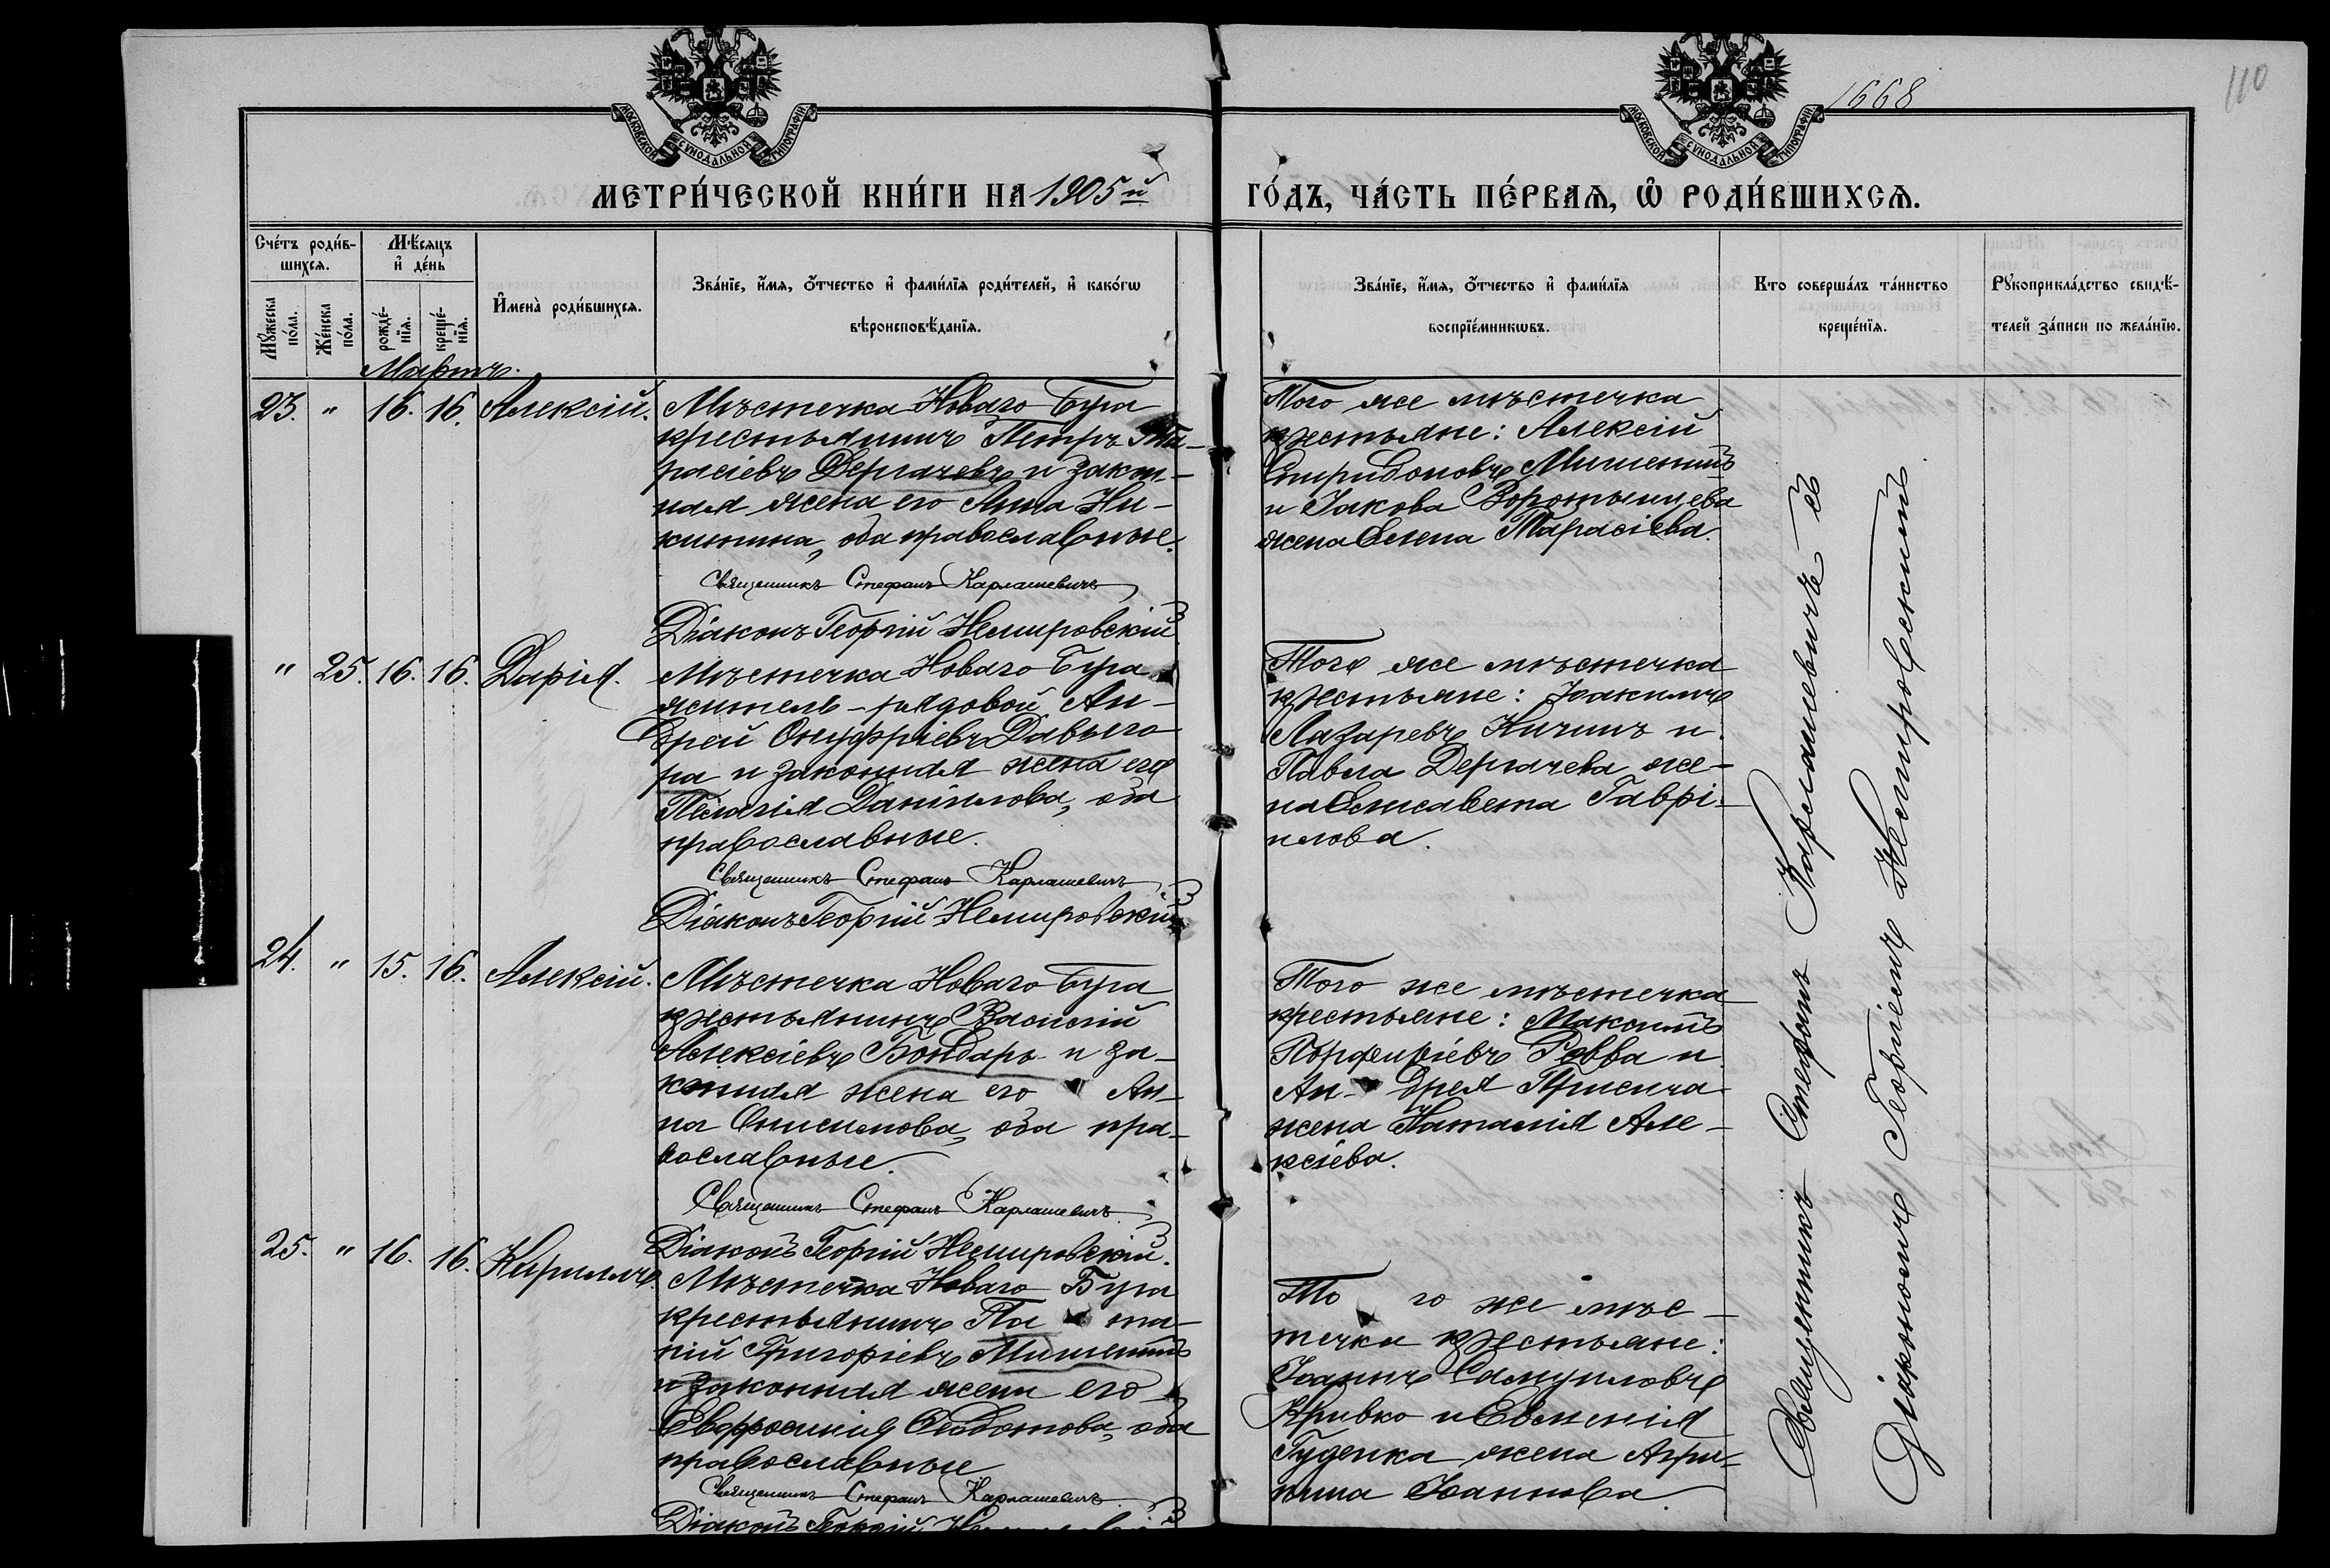 1668
110
МОСКОВСКОЙ СѴНОДАЛЬНОЙ ТИПОГРАФІИ
МОСКОВСКОЙ СѴНОДАЛЬНОЙ ТИПОГРАФІИ
МЕТРИ́ЧЕСКОЙ КНИ́ГИ НА 1905й
ГО́ДЪ, ЧА́СТЬ ПЕ́РВАѦ, Ѿ РОДИ́ВШИХСѦ.
Сче́тъ роди́в-
шихсѧ.
Мꙋ́жеска по́ла.
Же́нска по́ла.
Мѣ́сѧцъ
и҆ де́нь
рожде́-
нїѧ.
креще́-
нїѧ.
И҆мена̀ роди́вшихсѧ.
Зва́нїе, и҆́мѧ, ѻ҆́тчество и҆ фами́лїѧ роди́телей, и҆ како́гѡ
вѣроисповѣ́данїѧ.
Зва́нїе, и҆́мѧ, ѻ҆́тчество и҆ фами́лїѧ
воспрїе́мникѡвъ.
Кто̀ соверша́лъ та́инство
креще́нїѧ.
Рꙋкоприкла́дство свидѣ́-
телей за́писи по жела́нїю.
Мартъ.
23. " 16. 16. Алексій.
Мѣстечка Новаго Буга
крестьянинъ Петръ Та-
расіевъ Дергачевъ и закон-
ная жена его Анна Ни-
китина, оба православные.
Священникъ Стефанъ Карлашевичъ
Діаконъ Георгій Немировскій
Того же мѣстечка
крестьяне: Алексій
Спиридоновъ Мишенинъ
и Іакова Воротынцева
жена Елена Тарасіева.
" 25. 16. 16. Дарія.
Мѣстечка Новаго Буга
житель-рядовой Ан-
дрей Онуфріевъ Давыго
ра и законная жена его
Пелагія Даніилова, оба
православные.
Священникъ Стефанъ Карлашевичъ
Діаконъ Георгій Немировскій
Того же мѣстечка
крестьяне: Іоакимъ
Лазаревъ Кичинъ и
Павла Дергачева же-
на Елисавета Гаврі-
илова.
24. " 15. 16. Алексій.
Мѣстечка Новаго Буга
крестьянинъ Василій
Алексіевъ Бондарь и за-
конная жена его Ан-
на Онисимова, оба пра-
вославные.
Священникъ Стефанъ Карлашевичъ
Діаконъ Георгій Немировскій.
Того же мѣстечка
крестьяне: Максимъ
Порфиріевъ Ревва и
Ан-дрея Присича
жена Наталія Але-
ксіева.
25. " 16. 16. Кириллъ.
Мѣстечка Новаго Буга
крестьянинъ Па
ній Григоріевъ Мишенинъ
и законная жена его
Евфросинія Ѳеодотова, оба
православные
Священникъ Стефанъ Карлашевичъ
Діаконъ Георгій Немировскій
То го же мѣс-
течка крестьяне:
Іоаннъ Самуиловъ
Кривко и Евменія
Гуденка жена Агри-
пина Іоаннова.
Священникъ Стефанъ Карлашевичъ съ
Діакономъ Георгіемъ Немировскимъ